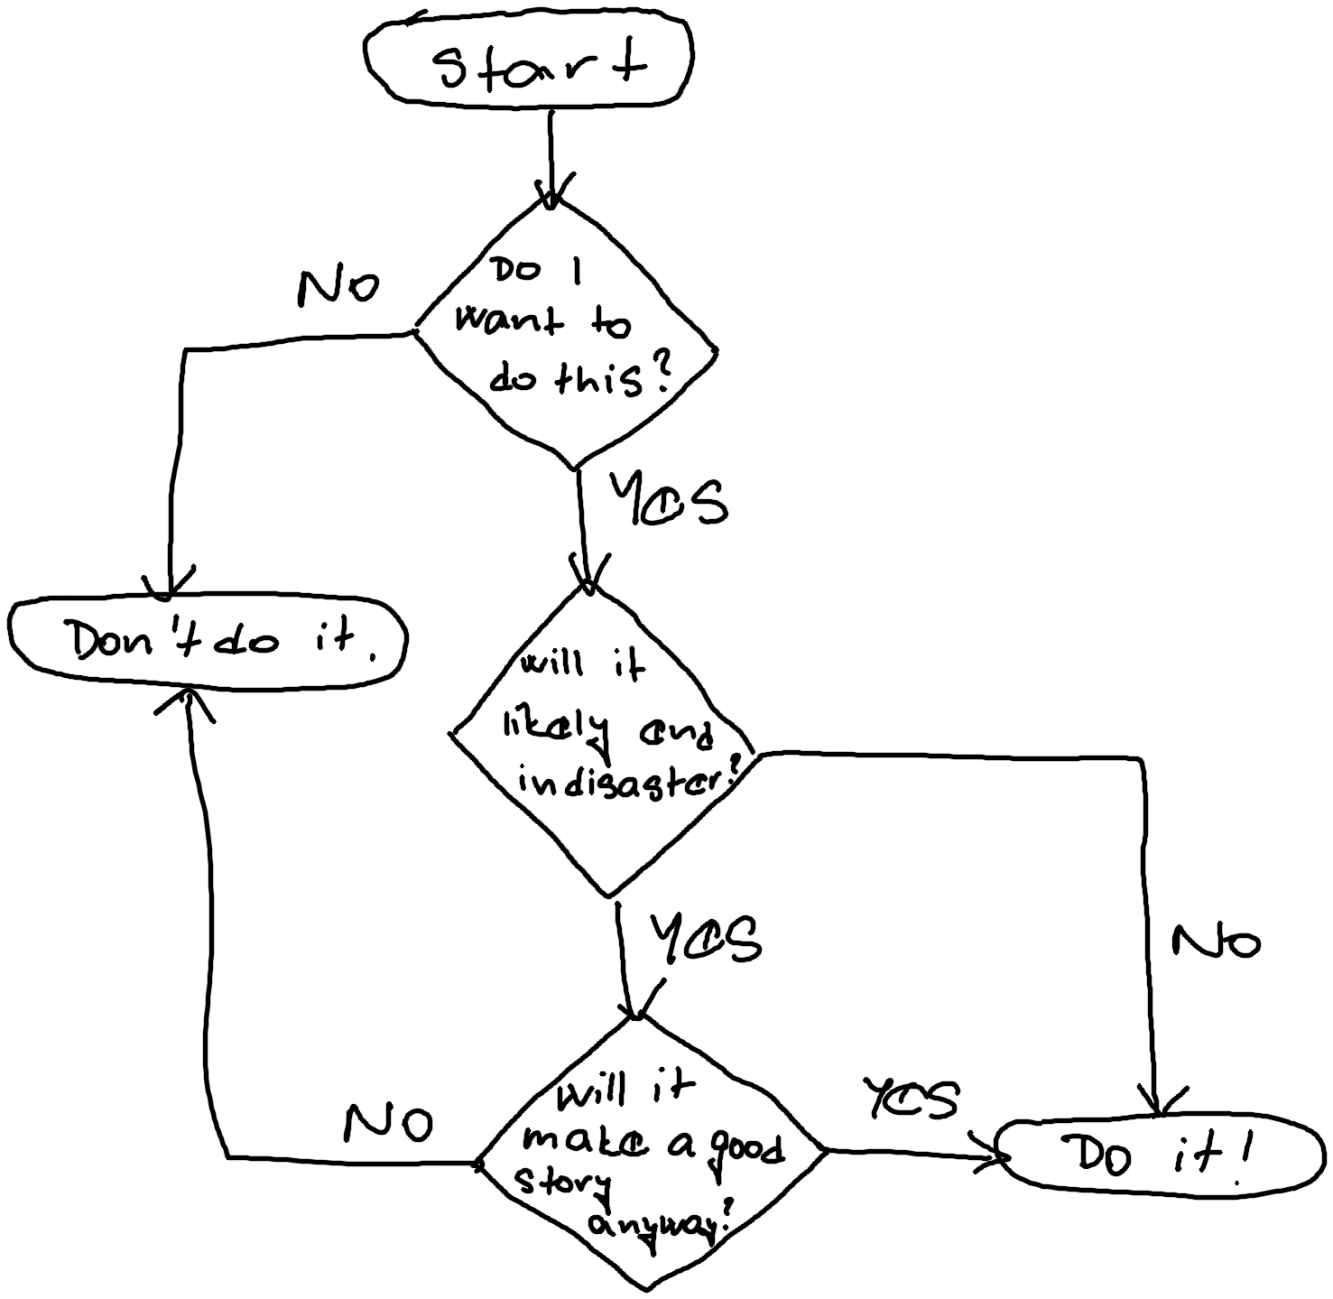 Start
NO
Do I
want to
do this?
YES
Don't do it.
will it
likely end
in disaster?
YES
NO
Will it
make a good
story
anyway?
NO
YES
Do it!